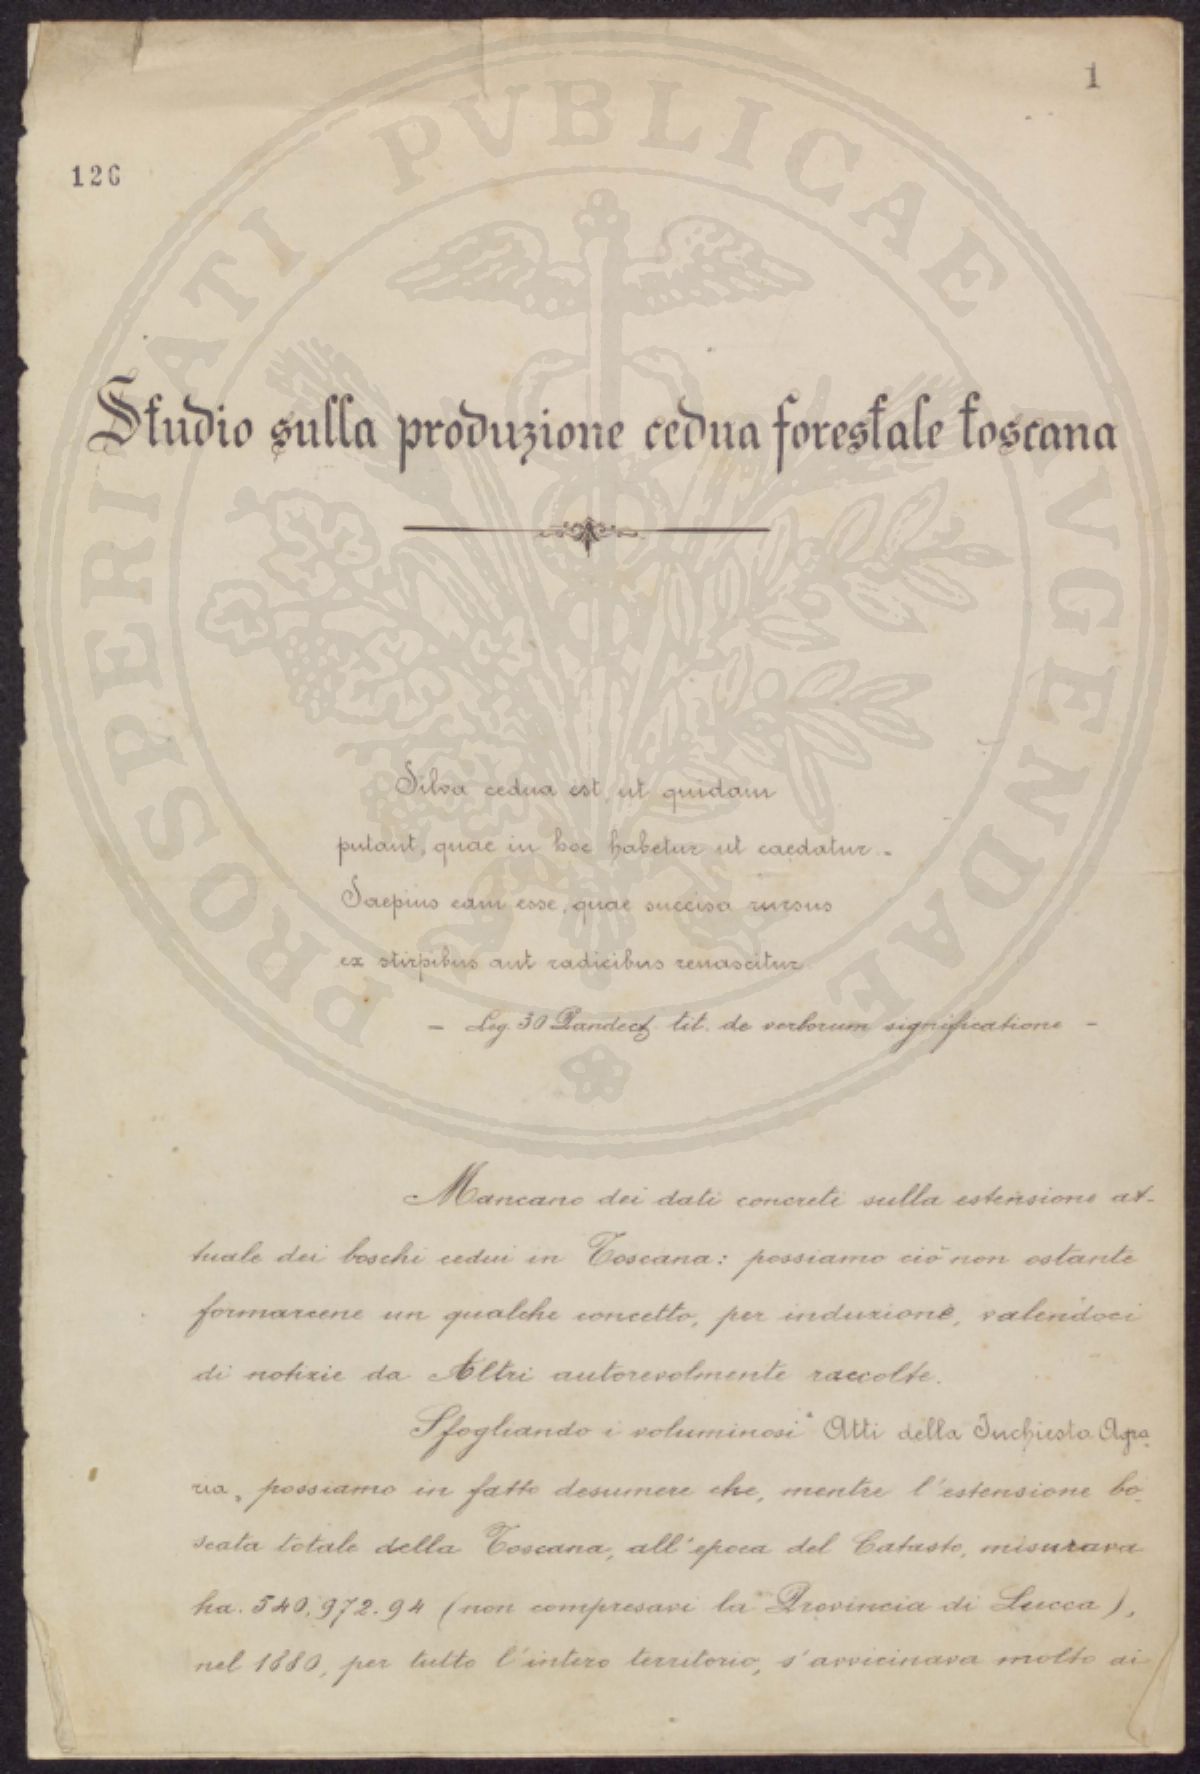 1
126
PROSPERITATI PVBLICAE AVGENDAE
Studio sulla produzione cedua forestale toscana
Silva cedua est, ut quidam
putant, quae in hoc habetur ut caedatur.
Saepius eam esse, quae succisa rursus
ex stirpibus aut radicibus renascitur
- Leg. 30 Pandect. tit. de verborum significatione -
Mancano dei dati concreti sulla estensione at-
tuale dei boschi cedui in Toscana: possiamo ciò non ostante
formarcene un qualche concetto, per induzione, valendoci
di notizie da Altri autorevolmente raccolte.
Sfogliando i voluminosi "Atti della Inchiesta Agra-
ria„ possiamo in fatto desumere che, mentre l'estensione bo-
scata totale della Toscana, all'epoca del Catasto, misurava
ha. 540,972.94 (non compresavi la Provincia di Lucca),
nel 1880, per tutto l'intero territorio, s'avvicinava molto ai